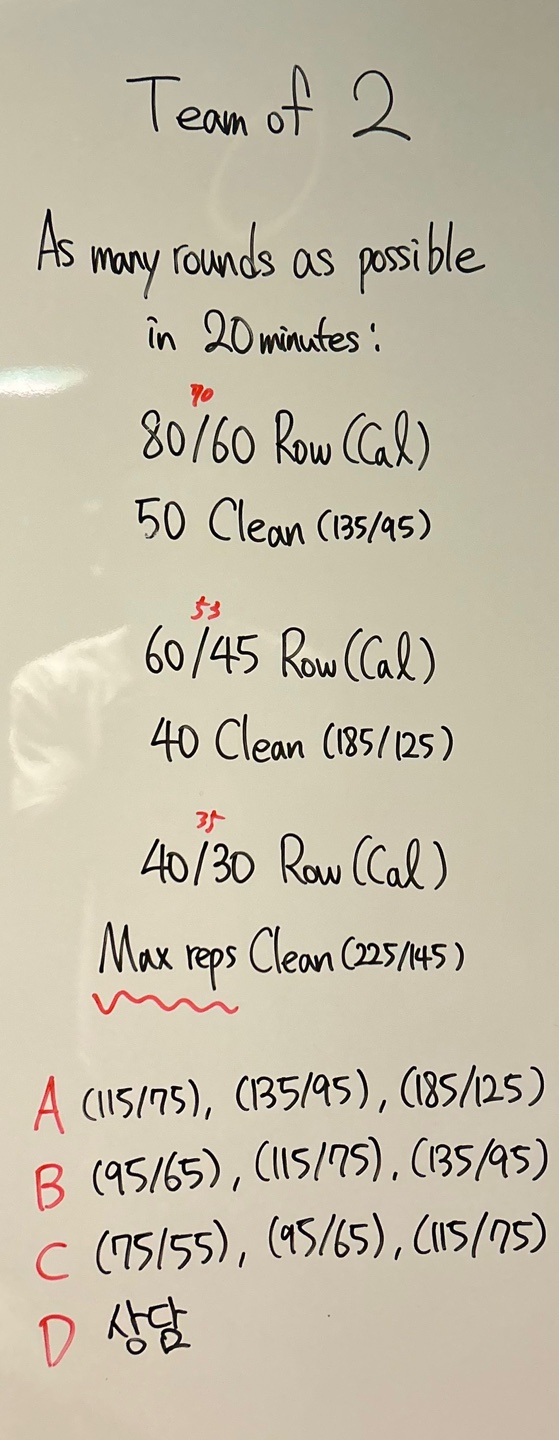 Team of 2
As many rounds as possible
in 20 minutes:
70
80/60 Row (Cal)
50 Clean (135/95)
53
60/45 Row (Cal)
40 Clean (185/125)
35
40/30 Row (Cal)
Max reps Clean (225/145)
A (115/75), (135/95), (185/125)
B (95/65), (115/75), (135/95)
C (75/55), (95/65), (115/75)
D 상담